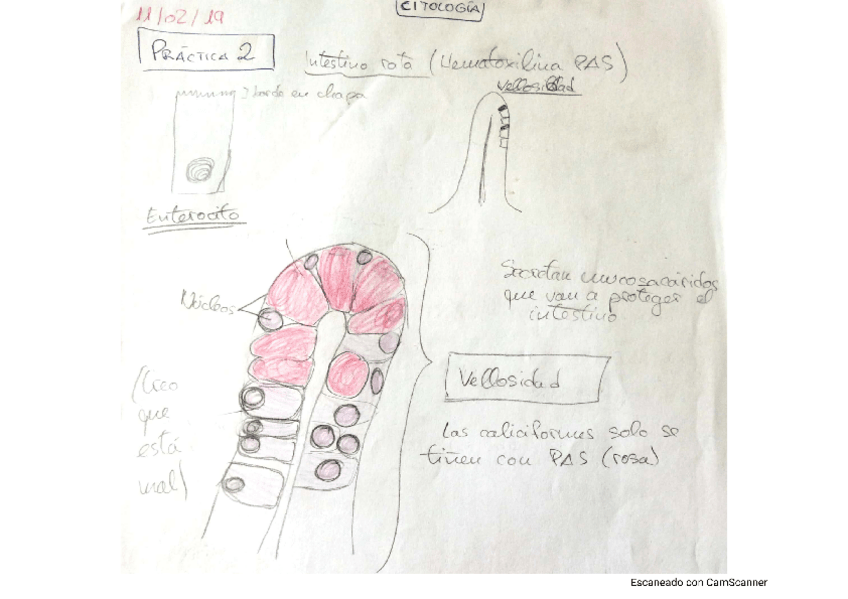 CITOLOGÍA
11/02/19
PRÁCTICA 2
Intestino rata (Hematoxilina PAS)
Vellosidad
borde en chapa
Enterocito
Núcleos
Secretan mucosacáridos
que van a proteger el
intestino
Vellosidad
(Creo
que
está
mal)
Las caliciformes solo se
tiñen con PAS (rosa)
Escaneado con CamScanner